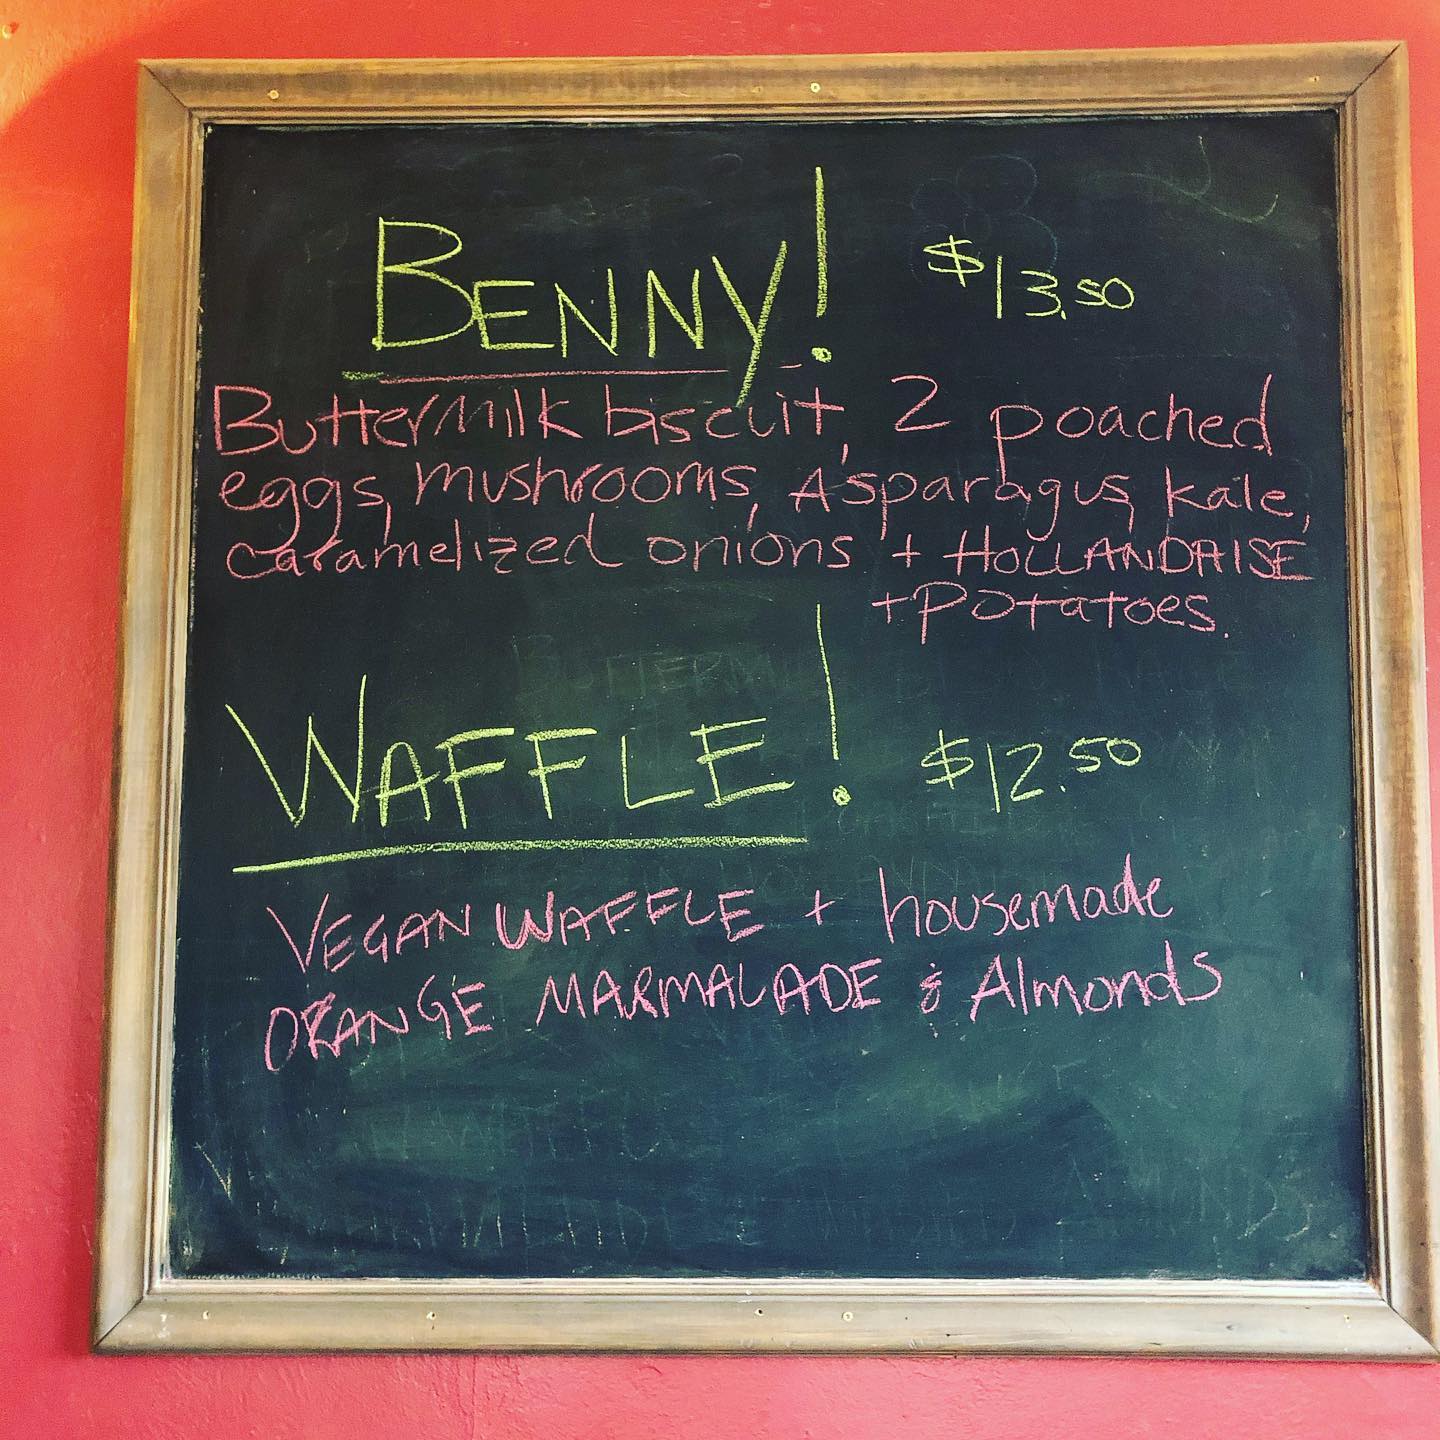 BENNY! $13.50
Buttermilk biscuit, 2 poached
eggs, mushrooms, Asparagus, kale,
caramelized onions + HOLLANDAISE
+ Potatoes.
WAFFLE! $12.50
VEGAN WAFFLE + housemade
ORANGE MARMALADE & Almonds